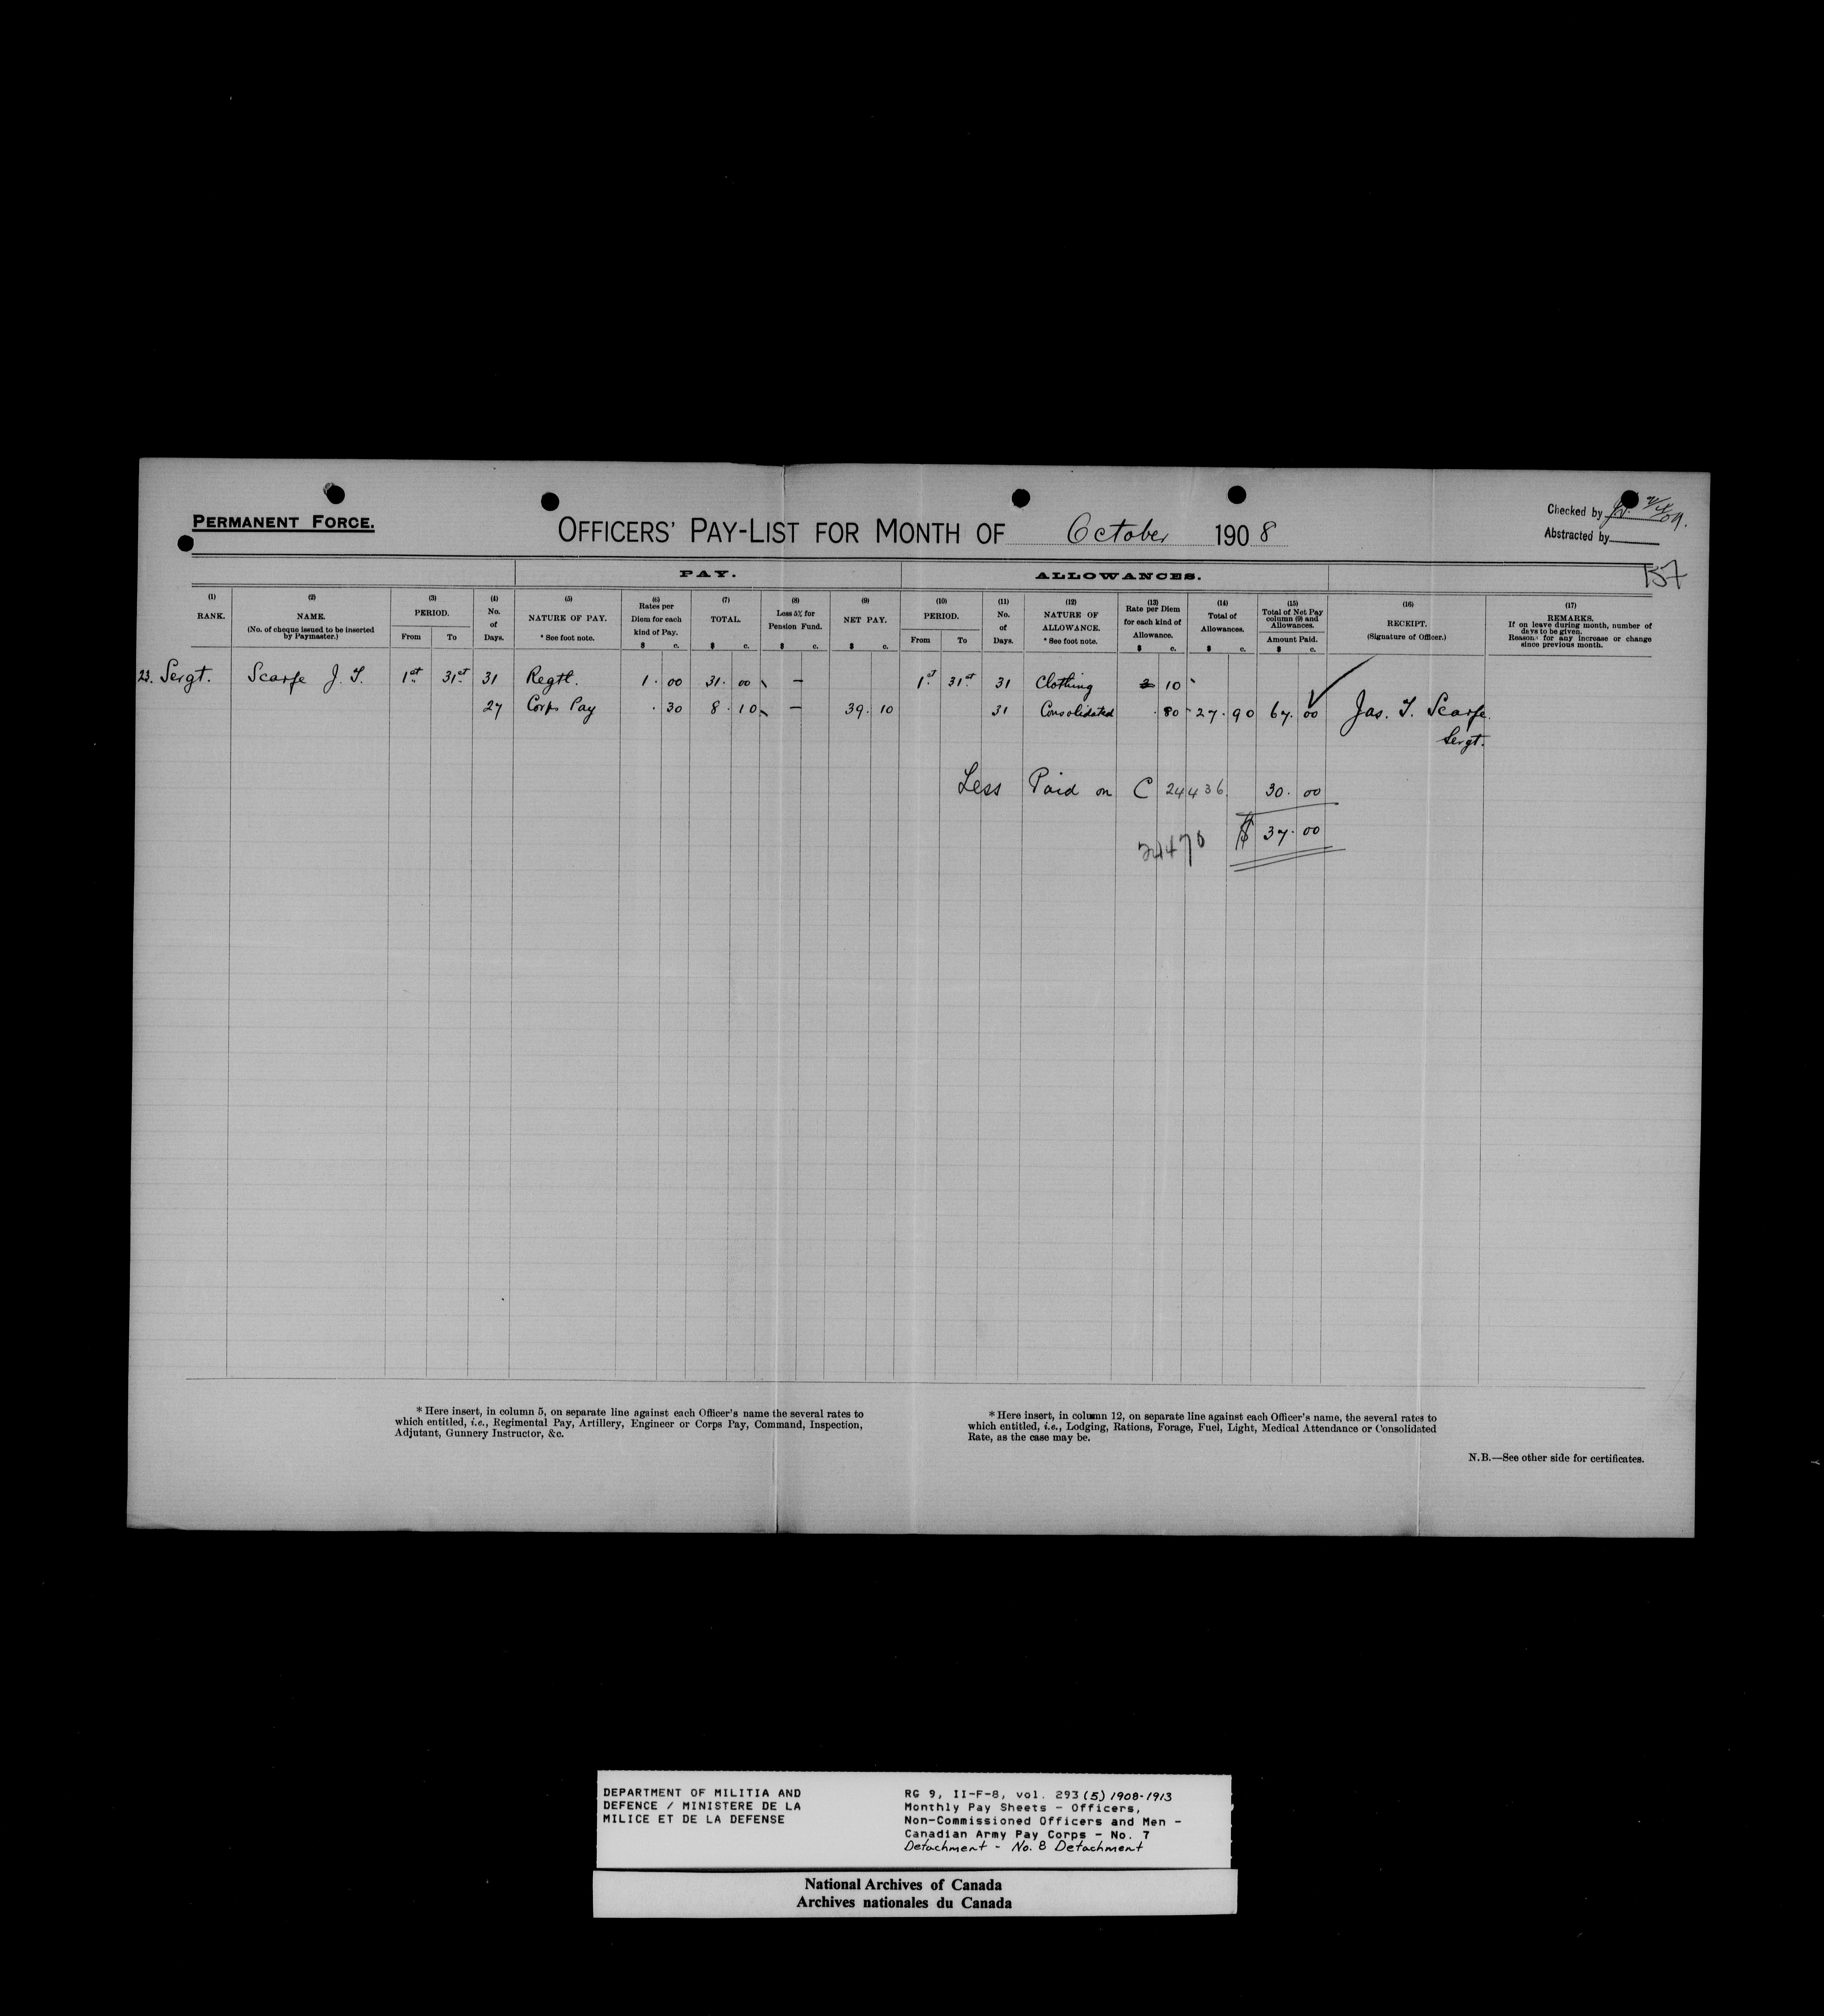 PERMANENT FORCE.
OFFICERS' PAY-LIST FOR MONTH OF October 1908
Checked by
Abstracted by
137
PAY.
ALLOWANCES.
(1) (2) (3) (4) (5) (6) (7) (8) (9) (10) (11) (12) (13) (14) (15) (16) (17)
RANK.
NAME.
(No. of cheque issued to be inserted
by Paymaster.)
PERIOD.
From To
No.
of
Days.
NATURE OF PAY.
* See foot note.
Rates per
Diem for each
kind of Pay.
$ c.
TOTAL.
$ c.
Less 5% for
Pension Fund.
$ c.
NET PAY.
$ c.
PERIOD.
From To
No.
of
Days.
NATURE OF
ALLOWANCE.
* See foot note.
Rate per Diem
for each kind of
Allowance.
$ c.
Total of
Allowances.
$ c.
Total of Net Pay
column (9) and
Allowances.
Amount Paid.
$ c.
RECEIPT.
(Signature of Officer.)
REMARKS.
If on leave during month, number of
days to be given.
Reasons for any increase or change
since previous month.
23. Sergt. Scarfe J. T. 1st 31st 31 Regtl. 1.00 31.00 — 1st 31st 31 Clothing 10
27 Corps Pay .30 8.10 — 39.10 31 Consolidated .80 27.90 67.00 Jas. T. Scarfe
Sergt.
Less Paid on C 24436 30.00
$ 37.00
24470
* Here insert, in column 5, on separate line against each Officer's name the several rates to
which entitled, i.e., Regimental Pay, Artillery, Engineer or Corps Pay, Command, Inspection,
Adjutant, Gunnery Instructor, &c.
* Here insert, in column 12, on separate line against each Officer's name, the several rates to
which entitled, i.e., Lodging, Rations, Forage, Fuel, Light, Medical Attendance or Consolidated
Rate, as the case may be.
N.B.—See other side for certificates.
DEPARTMENT OF MILITIA AND
DEFENCE / MINISTERE DE LA
MILICE ET DE LA DEFENSE
RG 9, II-F-8, vol. 293 (5) 1908-1913
Monthly Pay Sheets - Officers,
Non-Commissioned Officers and Men -
Canadian Army Pay Corps - No. 7
Detachment - No. 8 Detachment
National Archives of Canada
Archives nationales du Canada